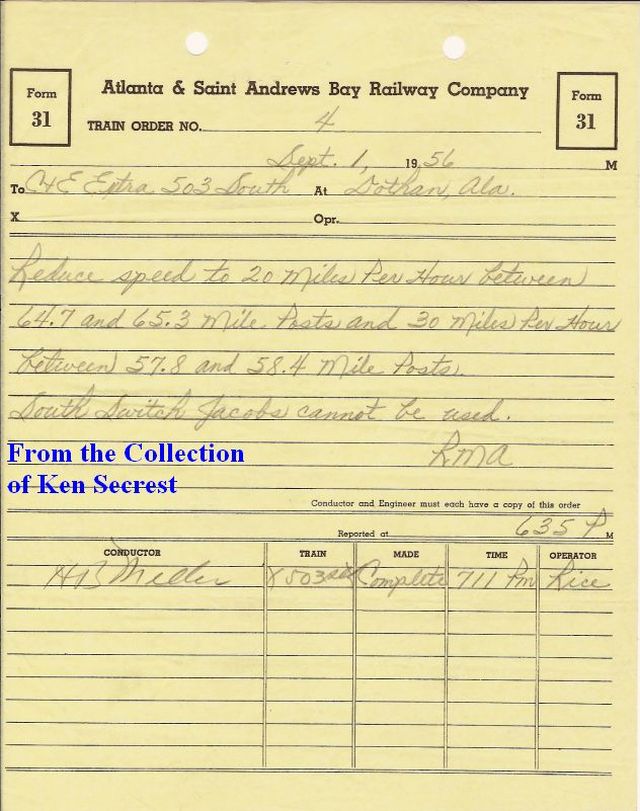 Form 31
Atlanta & Saint Andrews Bay Railway Company
Form 31
TRAIN ORDER NO. 4
Sept. 1, 1956 M
To C&E Extra 503 South At Dothan, Ala.
X Opr.
Reduce speed to 20 Miles Per Hour between
64.7 and 65.3 Mile Posts and 30 Miles Per Hour
between 57.8 and 58.4 Mile Posts.
South Switch Jacobs cannot be used.
RMA
From the Collection
of Ken Secrest
Conductor and Engineer must each have a copy of this order
Reported at 635 P M
CONDUCTOR TRAIN MADE TIME OPERATOR
HB Miller X503 Complete 711 Pm Rice